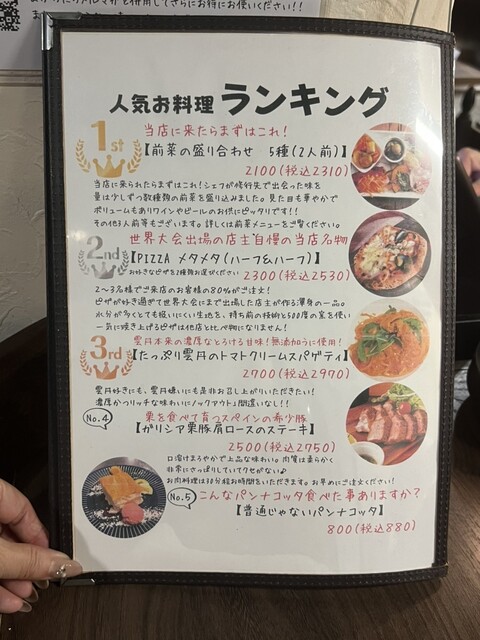 さらにお特にお使いください！！
人気お料理 ランキング
1st
当店に来たらまずはこれ！
【前菜の盛り合わせ 5種(2人前)】
2100(税込2310)
当店に来られたらまずはこれ！シェフが修行先で出会った味を
量は少しずつ数種類の前菜を盛り込みました。見た目も華やかで
ボリュームもありワインやビールのお供にピッタリです！！
その他3人前等もございます。詳しくは前菜メニューをご覧ください。
2nd
世界大会出場の店主自慢の当店名物
【PIZZA メタメタ(ハーフ&ハーフ)】
お好きなピザを2種類お選びください
2300(税込2530)
2〜3名様でご来店のお客様の80%がご注文！
ピザが好き過ぎて世界大会にまで出場した店主が作る渾身の一品。
水分が多くとても扱いにくい生地を、持ち前の技術と500度の窯を使い
一気に焼き上げるピザは他店と比べ物になりません！
3rd
雲丹本来の濃厚なとろける甘味！無添加うに使用！
【たっぷり雲丹のトマトクリームスパゲティ】
2700(税込2970)
雲丹好きにも、雲丹嫌いにも是非お召し上がりいただきたい！
濃厚かつリッチな味わいにノックアウト間違いなし！！
No.4
栗を食べて育つスペインの希少豚
【ガリシア栗豚肩ロースのステーキ】
2500(税込2750)
口溶けまろやかで上品な味わい。肉質は柔らかく
非常にさっぱりしていてクセがない♪
お肉料理は30分程お時間をいただきます。お早めにご注文ください！
No.5
こんなパンナコッタ食べた事ありますか？
【普通じゃないパンナコッタ】
800(税込880)